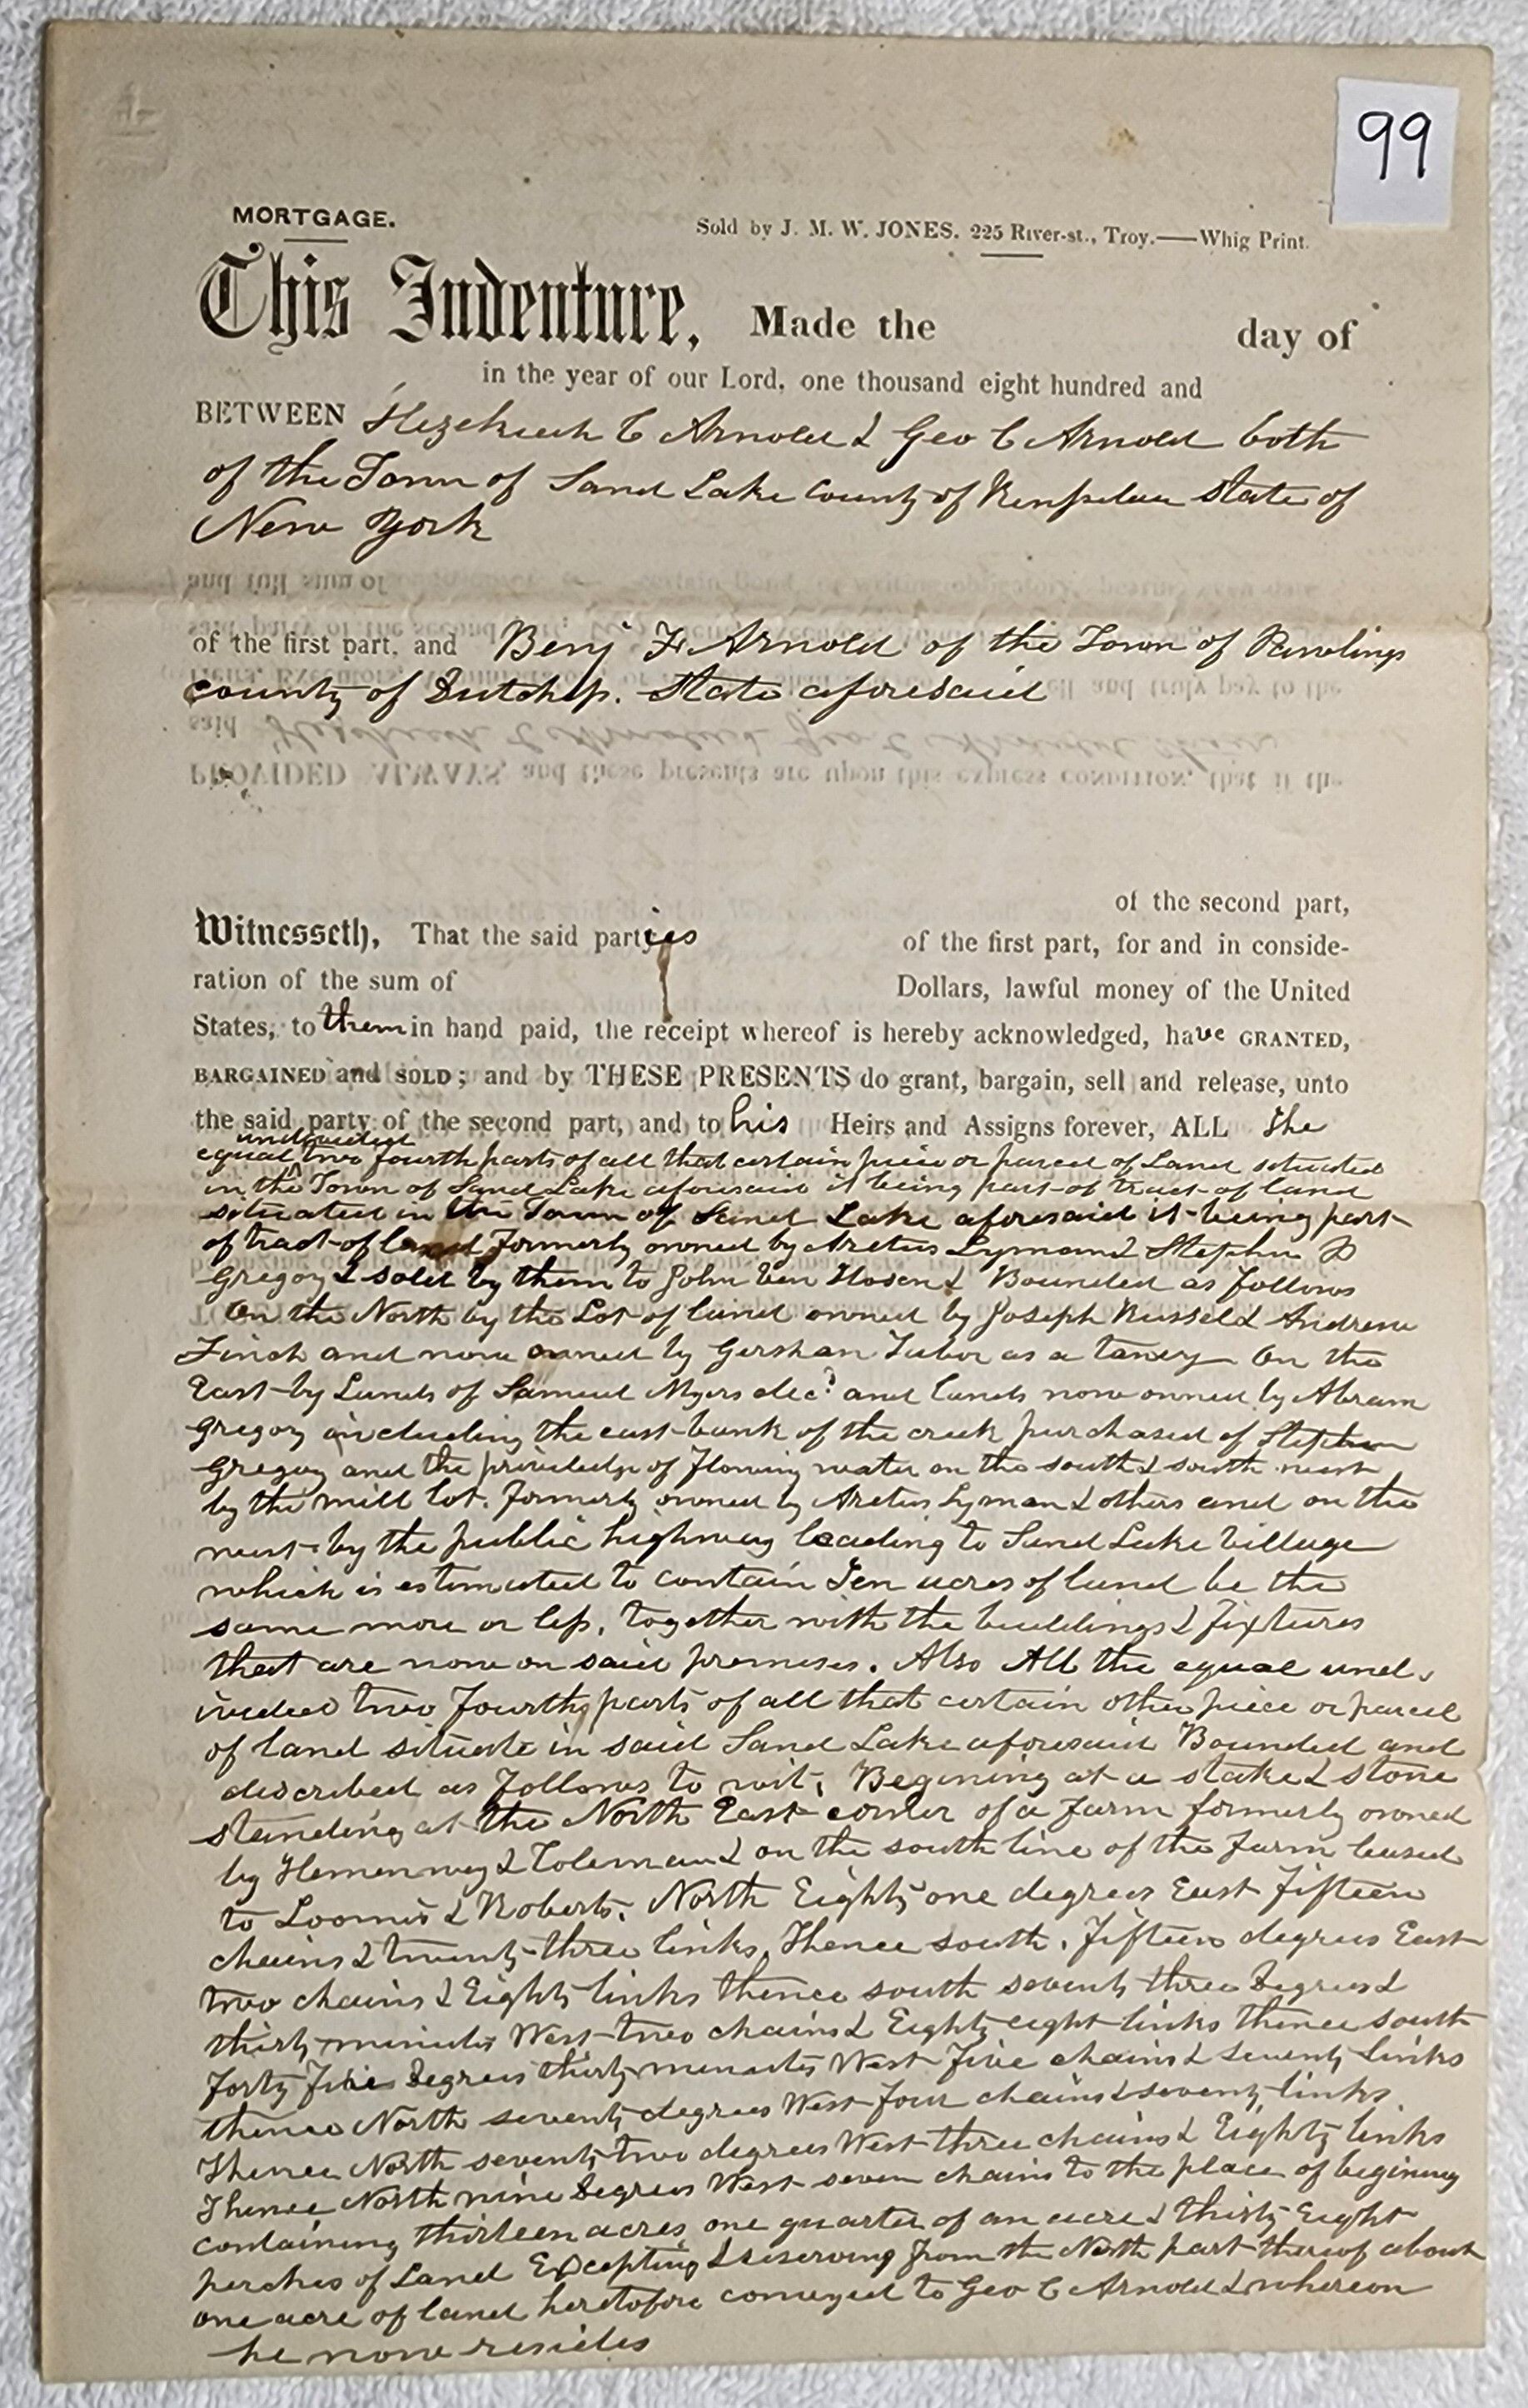 99
MORTGAGE.
Sold by J. M. W. JONES. 225 River-st., Troy.——Whig Print.
This Indenture, Made the day of
in the year of our Lord, one thousand eight hundred and
BETWEEN Hezekiah C Arnold & Geo C Arnold both
of the Town of Sand Lake County of Rensselaer State of
New York
of the first part, and Benj F Arnold of the Town of Pawlings
County of Dutchess. State aforesaid
of the second part,
Witnesseth, That the said parties of the first part, for and in conside-
ration of the sum of Dollars, lawful money of the United
States, to them in hand paid, the receipt whereof is hereby acknowledged, have GRANTED,
BARGAINED and SOLD; and by THESE PRESENTS do grant, bargain, sell and release, unto
the said party of the second part, and to his Heirs and Assigns forever, ALL The
undivided
equal two fourth parts of all that certain piece or parcel of Land situated
in the Town of Sand Lake aforesaid it being part of tract of land
situated in the Town of Sand Lake aforesaid it being part
of tract of land formerly owned by Aretus Lyman & Stephen
Gregory & sold by them to John Van Hosen & Bounded as follows
On the North by the Lot of land owned by Joseph Russel & Andrew
Finch and now owned by Gershan Tabor as a tanery On the
East by Lands of Samuel Myers decd and lands now owned by Abram
Gregory including the east bank of the creek purchased of Stephen
Gregory and the priviledge of flowing water on the south & south west
by the mill lot. formerly owned by Aretus Lyman & others and on the
west by the public highway leading to Sand Lake Village
which is estimated to contain Ten acres of land be the
same more or less, together with the buildings & fixtures
that are now on said premises. Also All the equal und-
ivided two fourths parts of all that certain other piece or parcel
of land situate in said Sand Lake aforesaid Bounded and
discribed as follows to wit; Begining at a stake & stone
standing at the North East corner of a farm formerly owned
by Hemenway & Coleman & on the south line of the farm leased
to Loomis & Roberts. North Eighty one degrees East fifteen
chains & twenty three links, Thence south. fifteen degrees East
two chains & Eighty links thence south seventy three degrees &
thirty minutes West two chains & Eighty eight links thence south
forty five degrees thirty minutes West five chains & seventy links
thence North seventy degrees West four chains & seventy links
Thence North seventy two degrees West three chains & Eighty links
Thence North nine degrees West seven chains to the place of begining
containing thirteen acres one quarter of an acre & thirty Eight
perches of Land Excepting & reserving from the North part thereof about
one acre of land heretofore conveyed to Geo C Arnold & whereon
he now resides